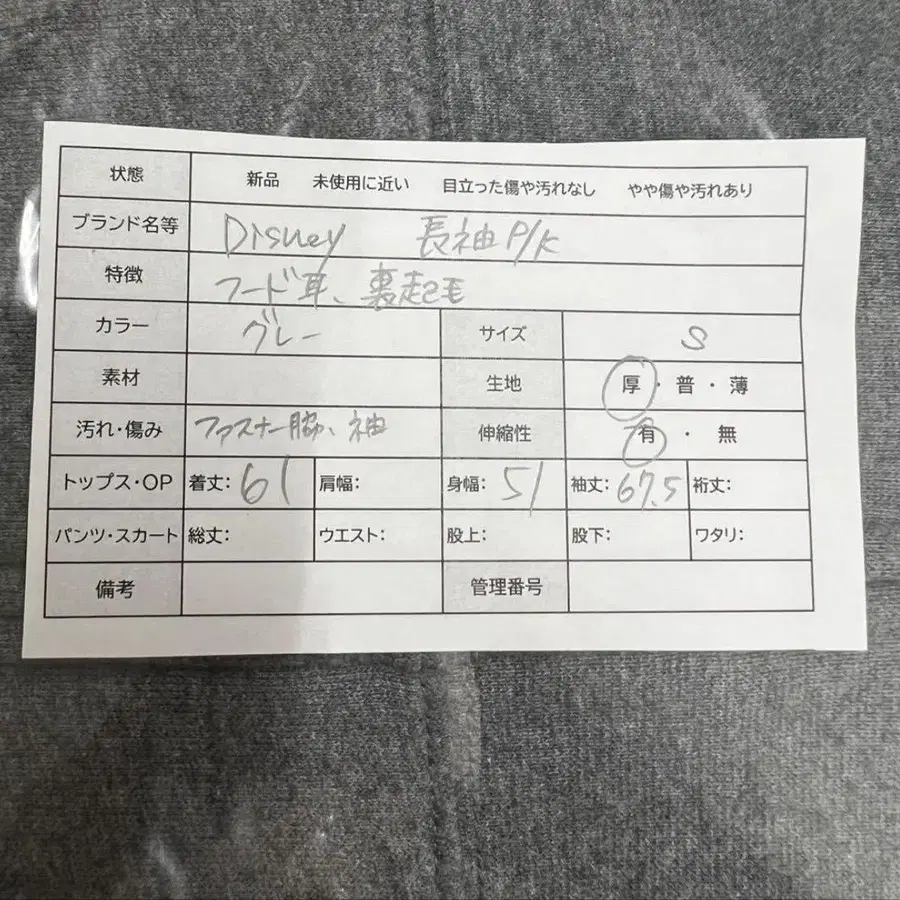 状態 新品 未使用に近い 目立った傷や汚れなし やや傷や汚れあり
ブランド名等 Disney 長袖P/K
特徴 フード耳、裏起毛
カラー グレー サイズ S
素材 生地 厚・普・薄
汚れ・傷み ファスナー脇、袖 伸縮性 有・無
トップス・OP 着丈:61 肩幅: 身幅:51 袖丈:67.5 裄丈:
パンツ・スカート 総丈: ウエスト: 股上: 股下: ワタリ:
備考 管理番号